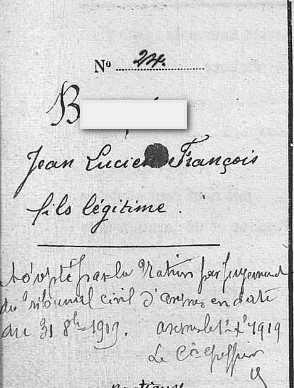 Nº 24.
B
Jean Lucien François
fils légitime.
Adopté par la Nation par jugement
du Tribunal civil d'Avesnes en date
du 31 8bre 1919. Avesnes le 1919
Le Greffier